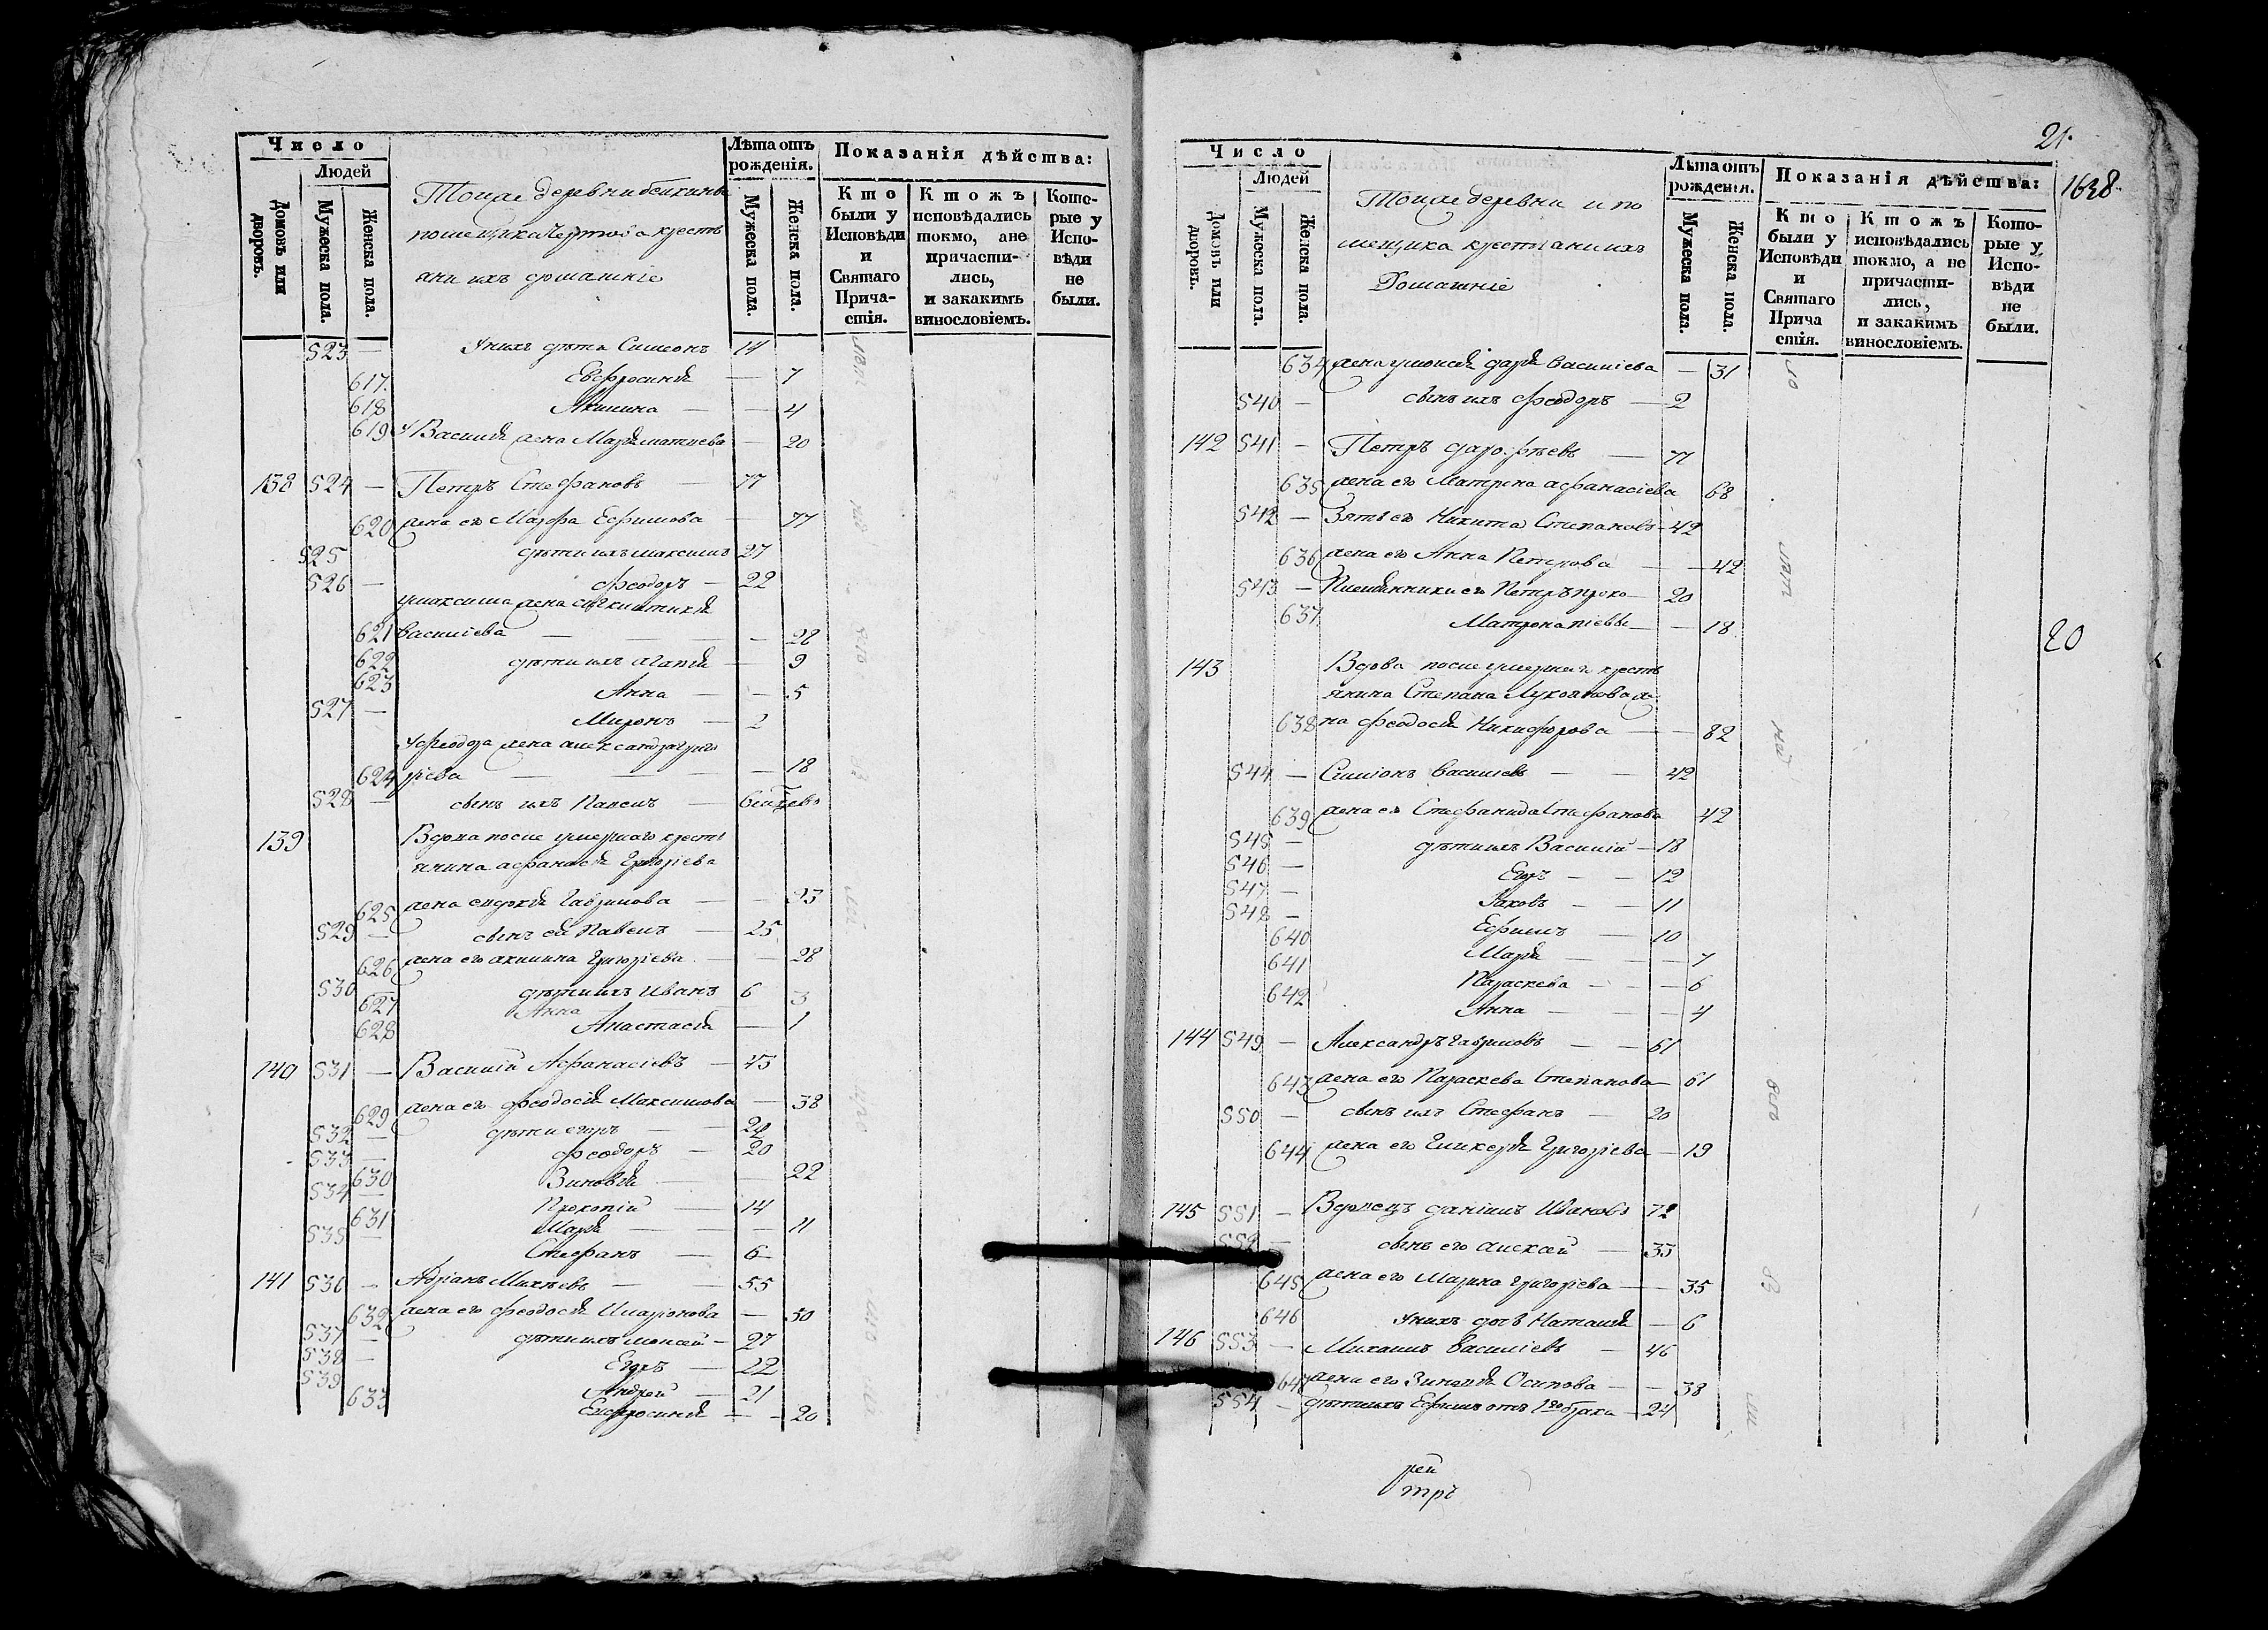 Число
Людей
Домовъ или дворовъ.
Мужеска пола.
Женска пола.
Тояже деревни
помещика Чертова кресть
яни ихъ домашніе
Лѣта отъ рожденія.
Мужеска пола.
Женска пола.
Показанія дѣйства:
Кто были у Исповѣди и Святаго Причастія.
Ктожъ исповѣдались токмо, а не причастились, и закакимъ винословіемъ.
Которые у Исповѣди не были.
523 — У нихъ дѣти Симеонъ 14
617 Евфросинія — 7
618 Акилина — — 4
619 У Василія жена Марія — 20
138 524 — Петръ Стефановъ — 77
620 жена его Марфа Ефимова — 77
525 дѣти ихъ Максимъ 27
526 — Феодоръ — 22
У Максима жена
621 Василіева — — — — 28
622 дѣти ихъ Агапія — 9
623 Анна — — 5
527 — Миронъ — 2
У Феодора жена Александра Григо
624 ріева — — — — 18
528 — сынъ ихъ Павелъ —
139 Вдова после умершаго кресть
янина Афанасія Григоріева
625 жена Евдокія Гаврилова — — 53
529 — сынъ ея Павелъ — 25
626 жена его Акилина Григоріева — — 28
530 дѣти ихъ Иванъ 6
627 Анна 3
628 Анастасія — 1
140 531 — Василій Афанасіевъ — 43
629 жена его Феодосія Максимова — 38
532 — дѣти Егоръ — 22
533 — Феодоръ — 20
630 Зиновія — — 22
534 — Прокопій — 14
631 Марія — — 11
535 — Стефанъ — 6
141 536 — Адріанъ Михѣевъ — — 55
632 жена его Феодосія Иларіонова — 50
537 — дѣти ихъ Моисей — 27
538 — Егоръ — 22
539 Андрей — 21
633 Евфросинія — — 20
21.
1638.
Число
Людей
Домовъ или дворовъ.
Мужеска пола.
Женска пола.
Тояже деревни и по
мещика крестьяни ихъ
Домашніе
Лѣта отъ рожденія.
Мужеска пола.
Женска пола.
Показанія дѣйства:
Кто были у Исповѣди и Святаго Причастія.
Ктожъ исповѣдались токмо, а не причастились, и закакимъ винословіемъ.
Которые у Исповѣди не были.
634 жена у Моисея Дарія Василіева — 31
540 — сынъ ихъ Феодоръ — 2
142 541 — Петръ Дорофѣевъ — 77
635 жена его Матрена Афанасіева 68
542 — Зять его Никита Степановъ — 42
636 жена его Анна Петрова — — 42
543 — Племянники его Петръ Проко — 20
637 Матрона піевы — — 18
20
143 Вдова после умершаго кресть
янина Степана Лукоянова же
638 на Феодосія Никифорова — — 82
544 — Симіонъ Василіевъ — — 42
639 жена его Стефанида Стефанова 42
545 — дѣти ихъ Василій — 18
546 — Егоръ — — 12
547 — Яковъ — — 11
548 — Ефимъ — 10
640 Марія — — — 7
641 Параскева — — — 6
642 Анна — — — 4
144 549 — Александръ Гавриловъ — — 61
643 жена его Параскева Степанова — 61
550 — сынъ ихъ Стефанъ — 20
644 жена его Гликерія Григоріева — 19
145 551 — Вдовецъ Даніилъ Ивановъ 72
552 — сынъ его Алексѣй — 33
645 жена его Марина Григоріева — — 35
646 У нихъ дочь Наталія — 6
146 553 — Михаилъ Василіевъ — 46
647 жена его Зиновія Осипова — — 38
554 — дѣти ихъ Ефимъ отъ 1го брака — 24
рей